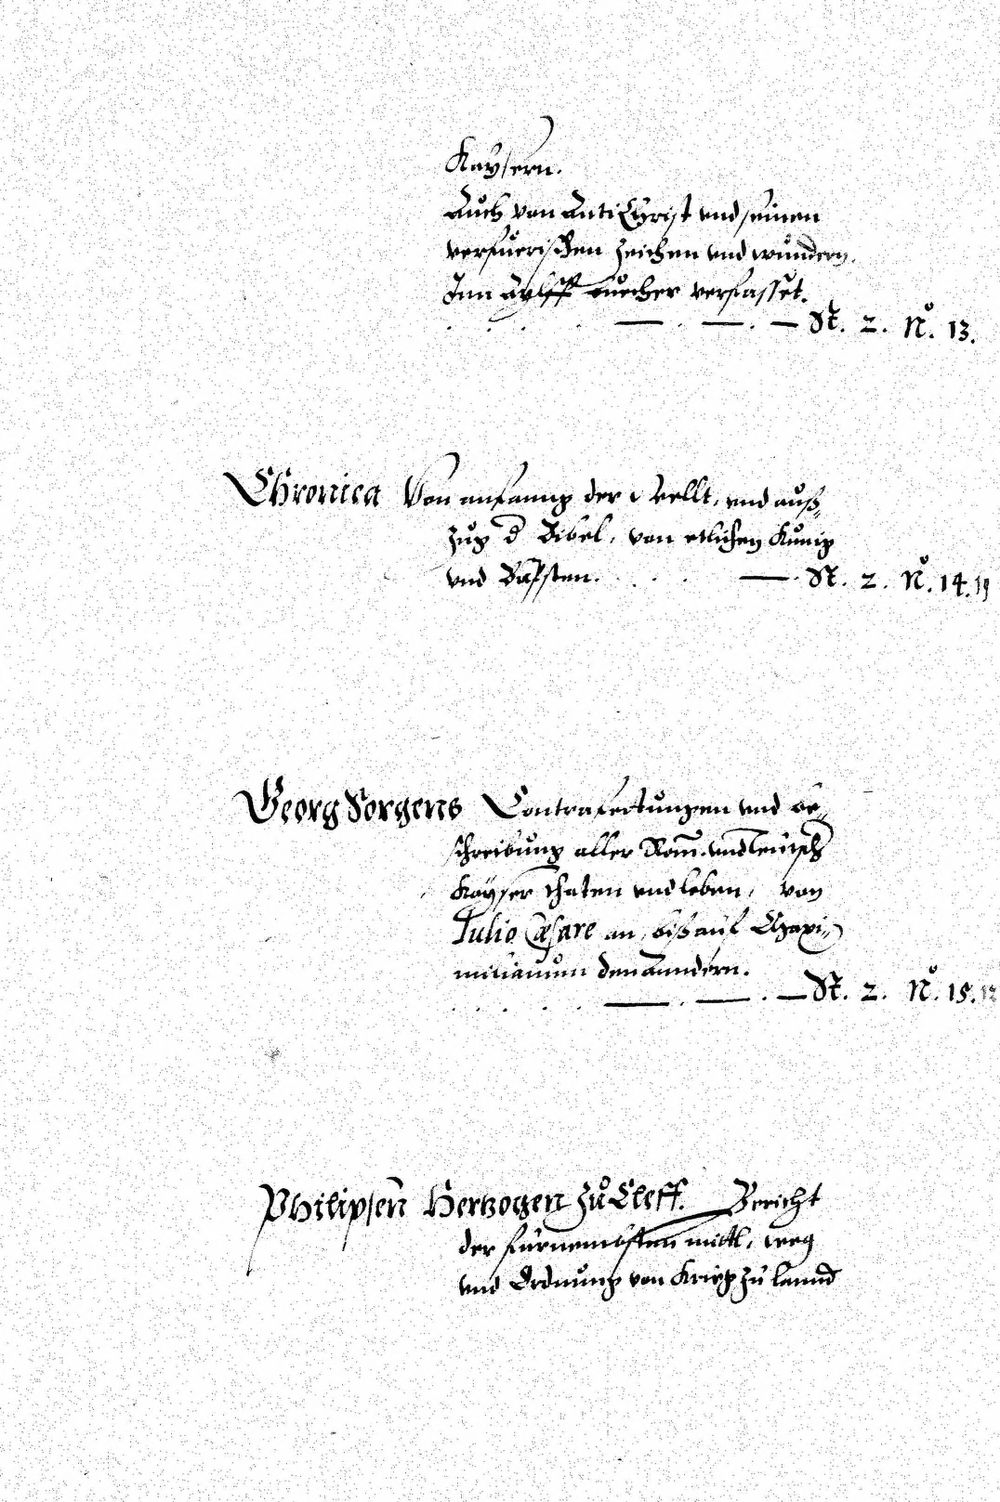 Kaysern.
Auch von AntiChrist vnd seinen
verfuerischen zeichen vnd wundern.
Inn Aylff buecher verfasset.
St. 2. No. 13.
Chronica Von anfanng der Wellt, vnd auß„
zug d Bibel, von etlichen Kunig
vnd Bapsten. St. 2. No. 14.
Georg Sorgens Contrafertungen vnd be„
schreibung aller Rom. vnd Teutsch
Kayser thaten vnd leben, von
Iulio Cæsare an, biß auf Maxi„
milianum den Anndern.
St. 2. No. 15.
Philipsen Hertzogen zu Cleff. Bericht
der furnembsten mittl, weg
vnd Ordnung von Krieg zu Lannd